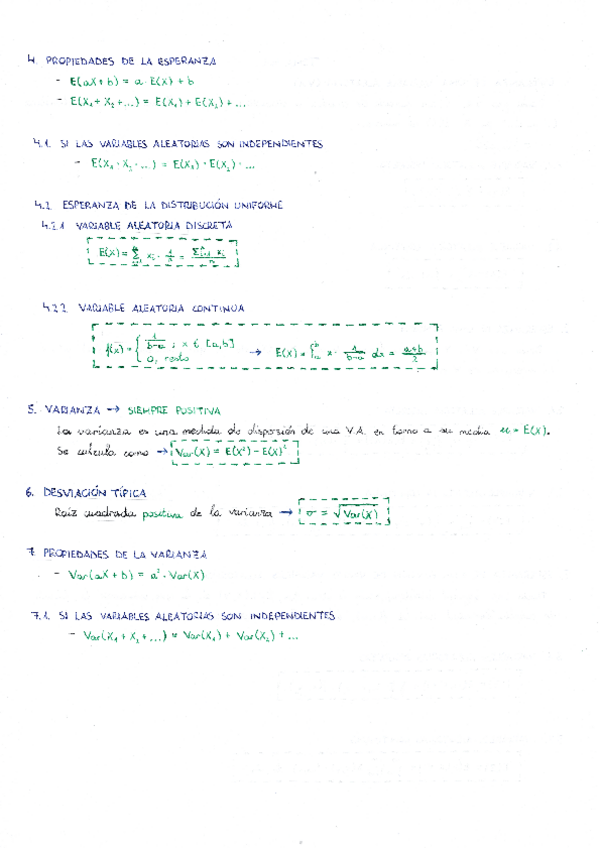 4. PROPIEDADES DE LA ESPERANZA
- E(aX+b) = a·E(X)+b
- E(X₁+X₂+...) = E(X₁)+E(X₂)+...
4.1. SI LAS VARIABLES ALEATORIAS SON INDEPENDIENTES
- E(X₁·X₂·...) = E(X₁)·E(X₂)·...
4.2. ESPERANZA DE LA DISTRIBUCIÓN UNIFORME
4.2.1 VARIABLE ALEATORIA DISCRETA
E(X) = Σⁿᵢ₌₁ xᵢ · 1/n = Σⁿᵢ₌₁ xᵢ / n
4.2.2. VARIABLE ALEATORIA CONTINUA
f(x) = { 1/(b-a) ; x ∈ [a,b]
0, resto → E(X) = ∫ₐᵇ x · 1/(b-a) dx = (a+b)/2
5. VARIANZA → SIEMPRE POSITIVA
La varianza es una medida de dispersión de una V.A. en torno a su media μ = E(X).
Se calcula como → Var(X) = E(X²) - E(X)²
6. DESVIACIÓN TÍPICA
Raíz cuadrada positiva de la varianza → σ = √Var(X)
7. PROPIEDADES DE LA VARIANZA
- Var(aX+b) = a²·Var(X)
7.1. SI LAS VARIABLES ALEATORIAS SON INDEPENDIENTES
- Var(X₁+X₂+...) = Var(X₁) + Var(X₂) + ...